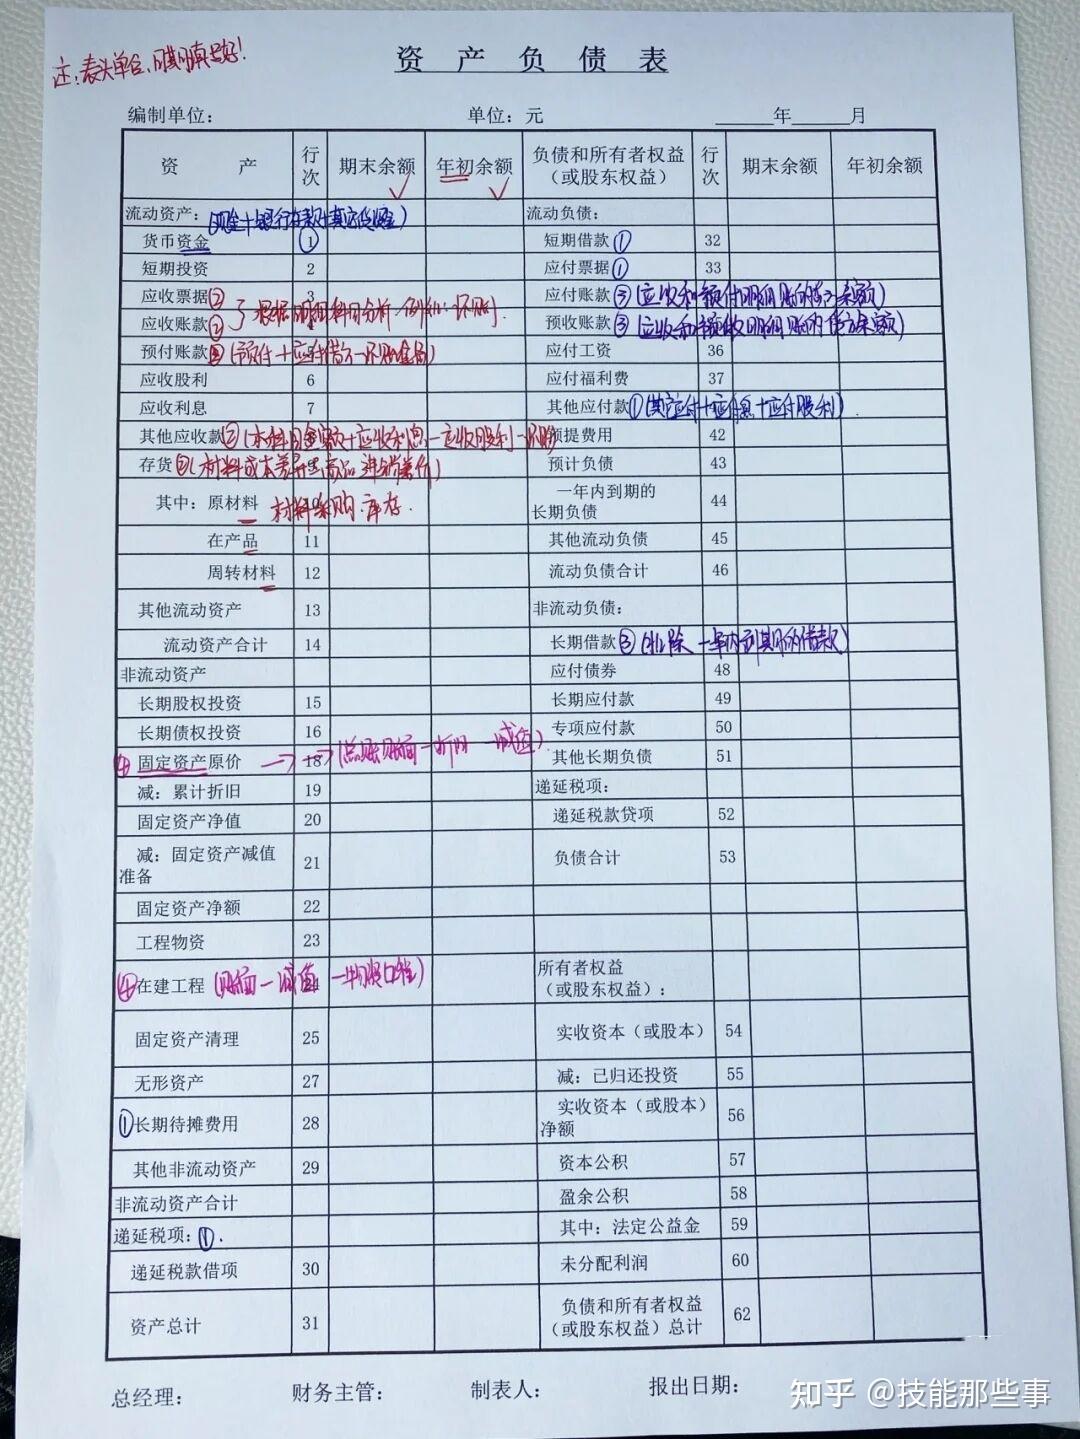 注:表头单位、日期填写好!
资 产 负 债 表
编制单位: 单位:元 年 月
资 产 行次 期末余额 年初余额 负债和所有者权益(或股东权益) 行次 期末余额 年初余额
流动资产: (现金+银行存款+其它货币) 流动负债:
货币资金 ① 1 短期借款① 32
短期投资 2 应付票据① 33
应收票据② 3 应付账款③(应收和预付明细账的贷方余额)
应收账款② 根据明细科目分析 例如:坏账 预收账款③(应收和预收明细账的贷方余额)
预付账款②(预付+应付借方-坏账金额) 应付工资 36
应收股利 6 应付福利费 37
应收利息 7 其他应付款①(其应付+应付息+应付股利)
其他应收款②(本科目余额+应收利息-应收股利-坏账 预提费用 42
存货②(材料成本差异+商品进销差价) 预计负债 43
其中:原材料 10 材料采购、库存. 一年内到期的长期负债 44
在产品 11 其他流动负债 45
周转材料 12 流动负债合计 46
其他流动资产 13 非流动负债:
流动资产合计 14 长期借款③(扣除一年内到期的借款)
非流动资产 应付债券 48
长期股权投资 15 长期应付款 49
长期债权投资 16 专项应付款 50
④固定资产原价 18 (总账账面-折旧-减值) 其他长期负债 51
减:累计折旧 19 递延税项:
固定资产净值 20 递延税款贷项 52
减:固定资产减值准备 21 负债合计 53
固定资产净额 22
工程物资 23
④在建工程(账面-减值-物资工程) 24 所有者权益(或股东权益):
固定资产清理 25 实收资本(或股本) 54
无形资产 27 减:已归还投资 55
①长期待摊费用 28 实收资本(或股本)净额 56
其他非流动资产 29 资本公积 57
非流动资产合计 盈余公积 58
递延税项:①. 其中:法定公益金 59
递延税款借项 30 未分配利润 60
资产总计 31 负债和所有者权益(或股东权益)总计 62
总经理: 财务主管: 制表人: 报出日期:
知乎 @技能那些事